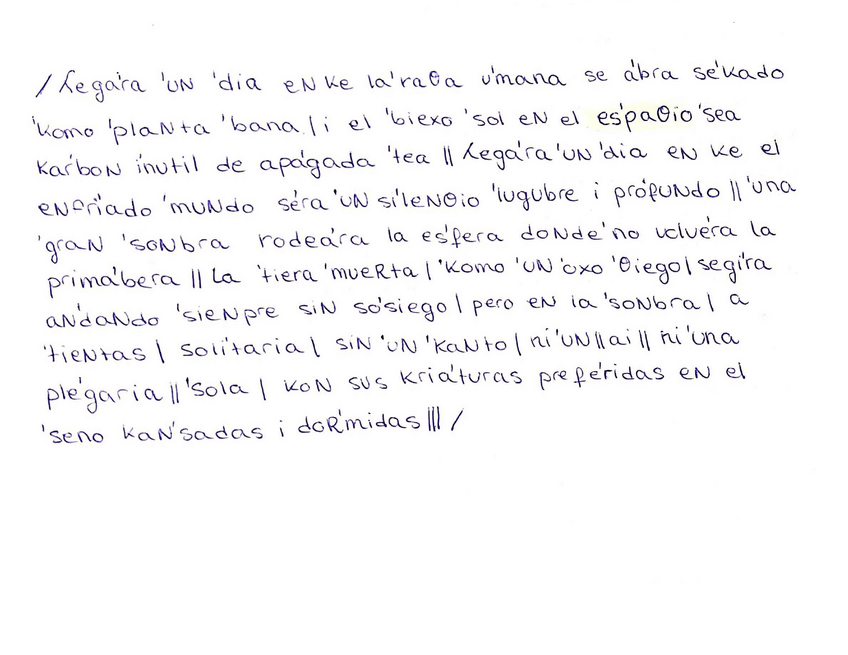 /ʎega'ra 'uN 'dia eN ke la 'raθa u'mana se a'bra se'kado
'komo 'plaNta 'bana | i el 'biexo 'sol eN el es'paθio 'sea
kar'boN i'nutil de apa'gada 'tea || ʎega'ra 'uN 'dia eN ke el
eNfriado 'muNdo se'ra 'uN si'leNθio 'lugubre i pro'fuNdo || 'una
'graN 'soNbra rodea'ra la es'fera doNde 'no volve'ra la
prima'bera || La 'tiera 'mueRta | 'komo 'uN 'oxo 'θiego | segira
aN'daNdo 'sieNpre siN so'siego | pero eN la 'soNbra | a
'tieNtas | solitaria | siN 'uN 'kaNto | ni 'uN || ai || ni 'una
ple'garia || 'sola | koN sus kria'turas prefe'ridas eN el
'seno kaN'sadas i doR'midas ||| /